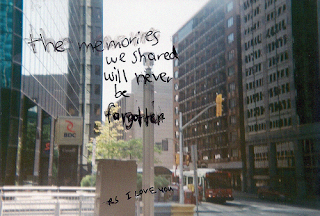 the memories
we shared
will never
be
forgotten
P.S I LOVE YOU